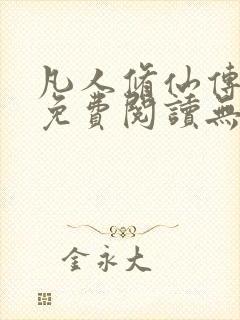 凡人脩仙傳
免費閱讀無
金永大